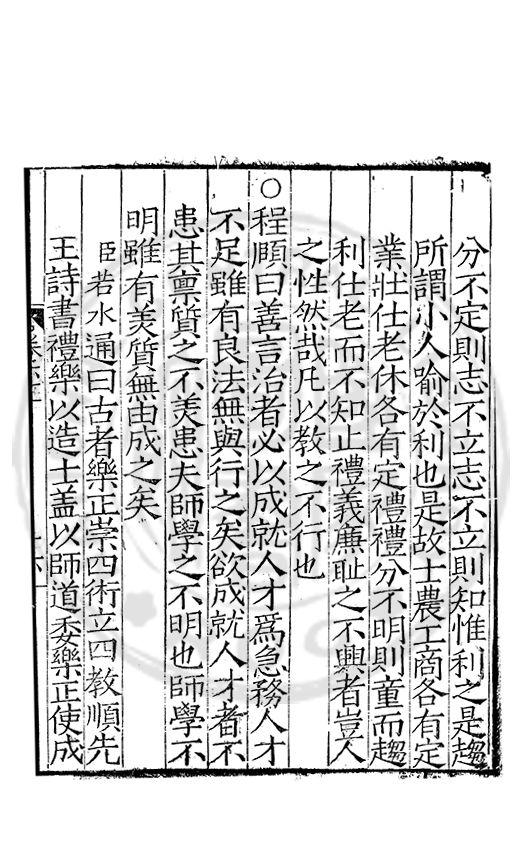 分不定則志不立志不立則知惟利之是趨
所謂小人喻於利也是故士農工商各有定
業壯仕老休各有定禮禮分不明則童而趨
利仕老而不知止禮義廉恥之不興者豈人
之性然哉凡以教之不行也
○程頤曰善言治者必以成就人才爲急務人才
不足雖有良法無與行之矣欲成就人才者不
患其稟質之不美患夫師學之不明也師學不
明雖有美質無由成之矣
臣若水通曰古者樂正崇四術立四教順先
王詩書禮樂以造士蓋以師道委樂正使成